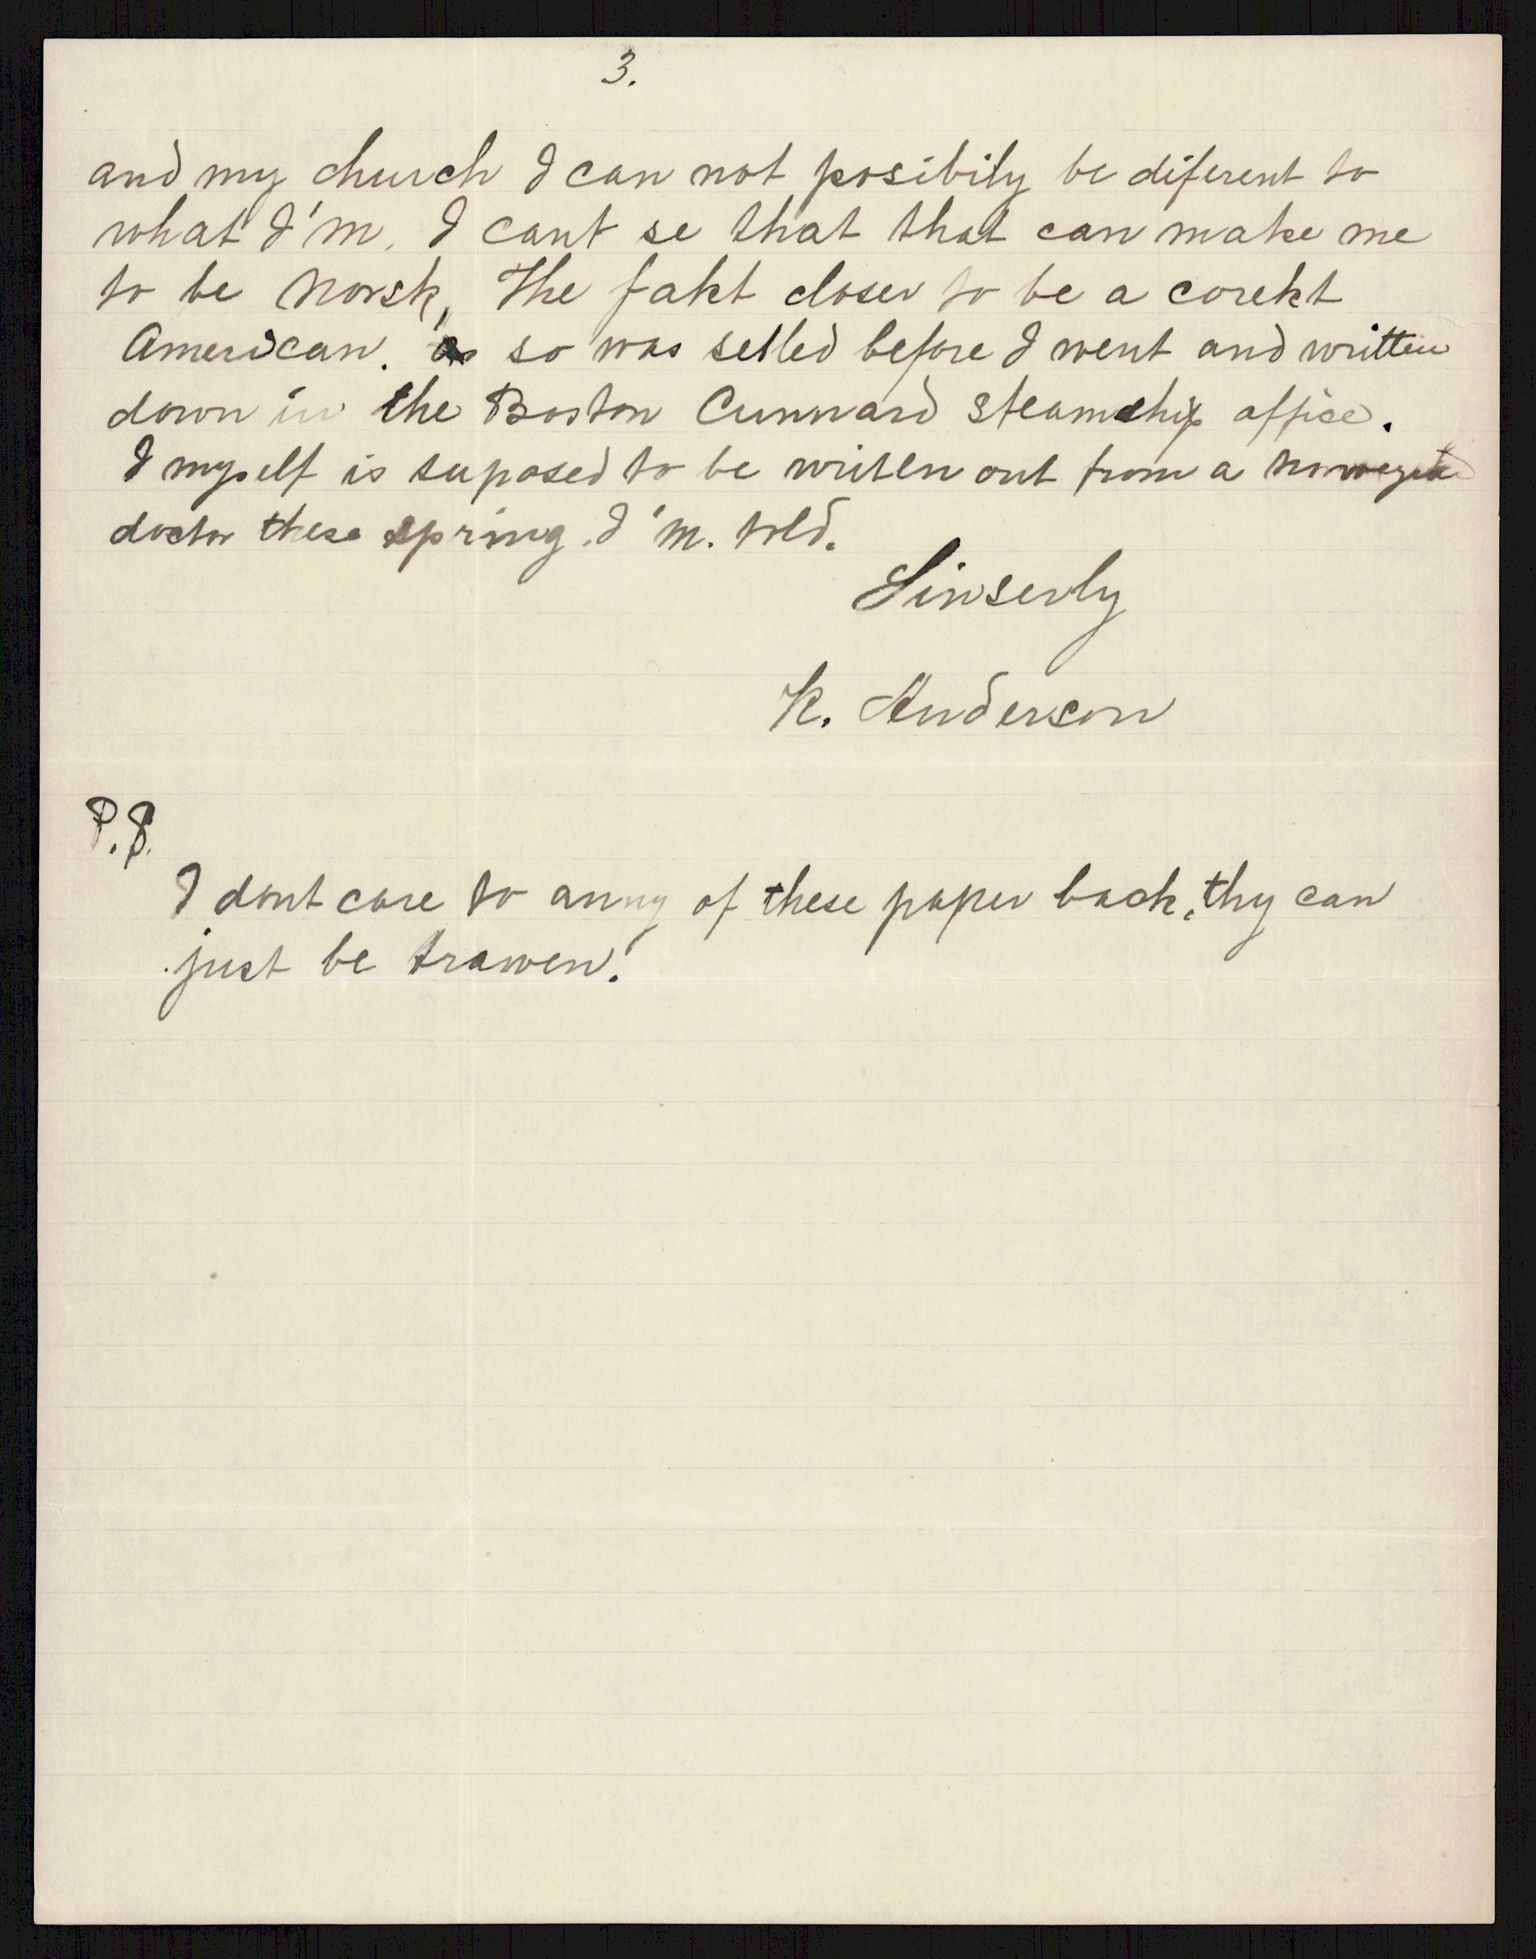 3.
and my church I can not posibily be diferent to
what I'm. I cant se that that can make me
to be Norsk, The fakt closer to be a corekt
American. so was selled before I went and written
down in the Boston Cunnard Steamship office.
I myself is suposed to be writen out from a
doctor these spring. I'm. told.
Sinserly
K. Anderson
P.S.
I dont care to anny of these paper back, thy can
just be trawen.